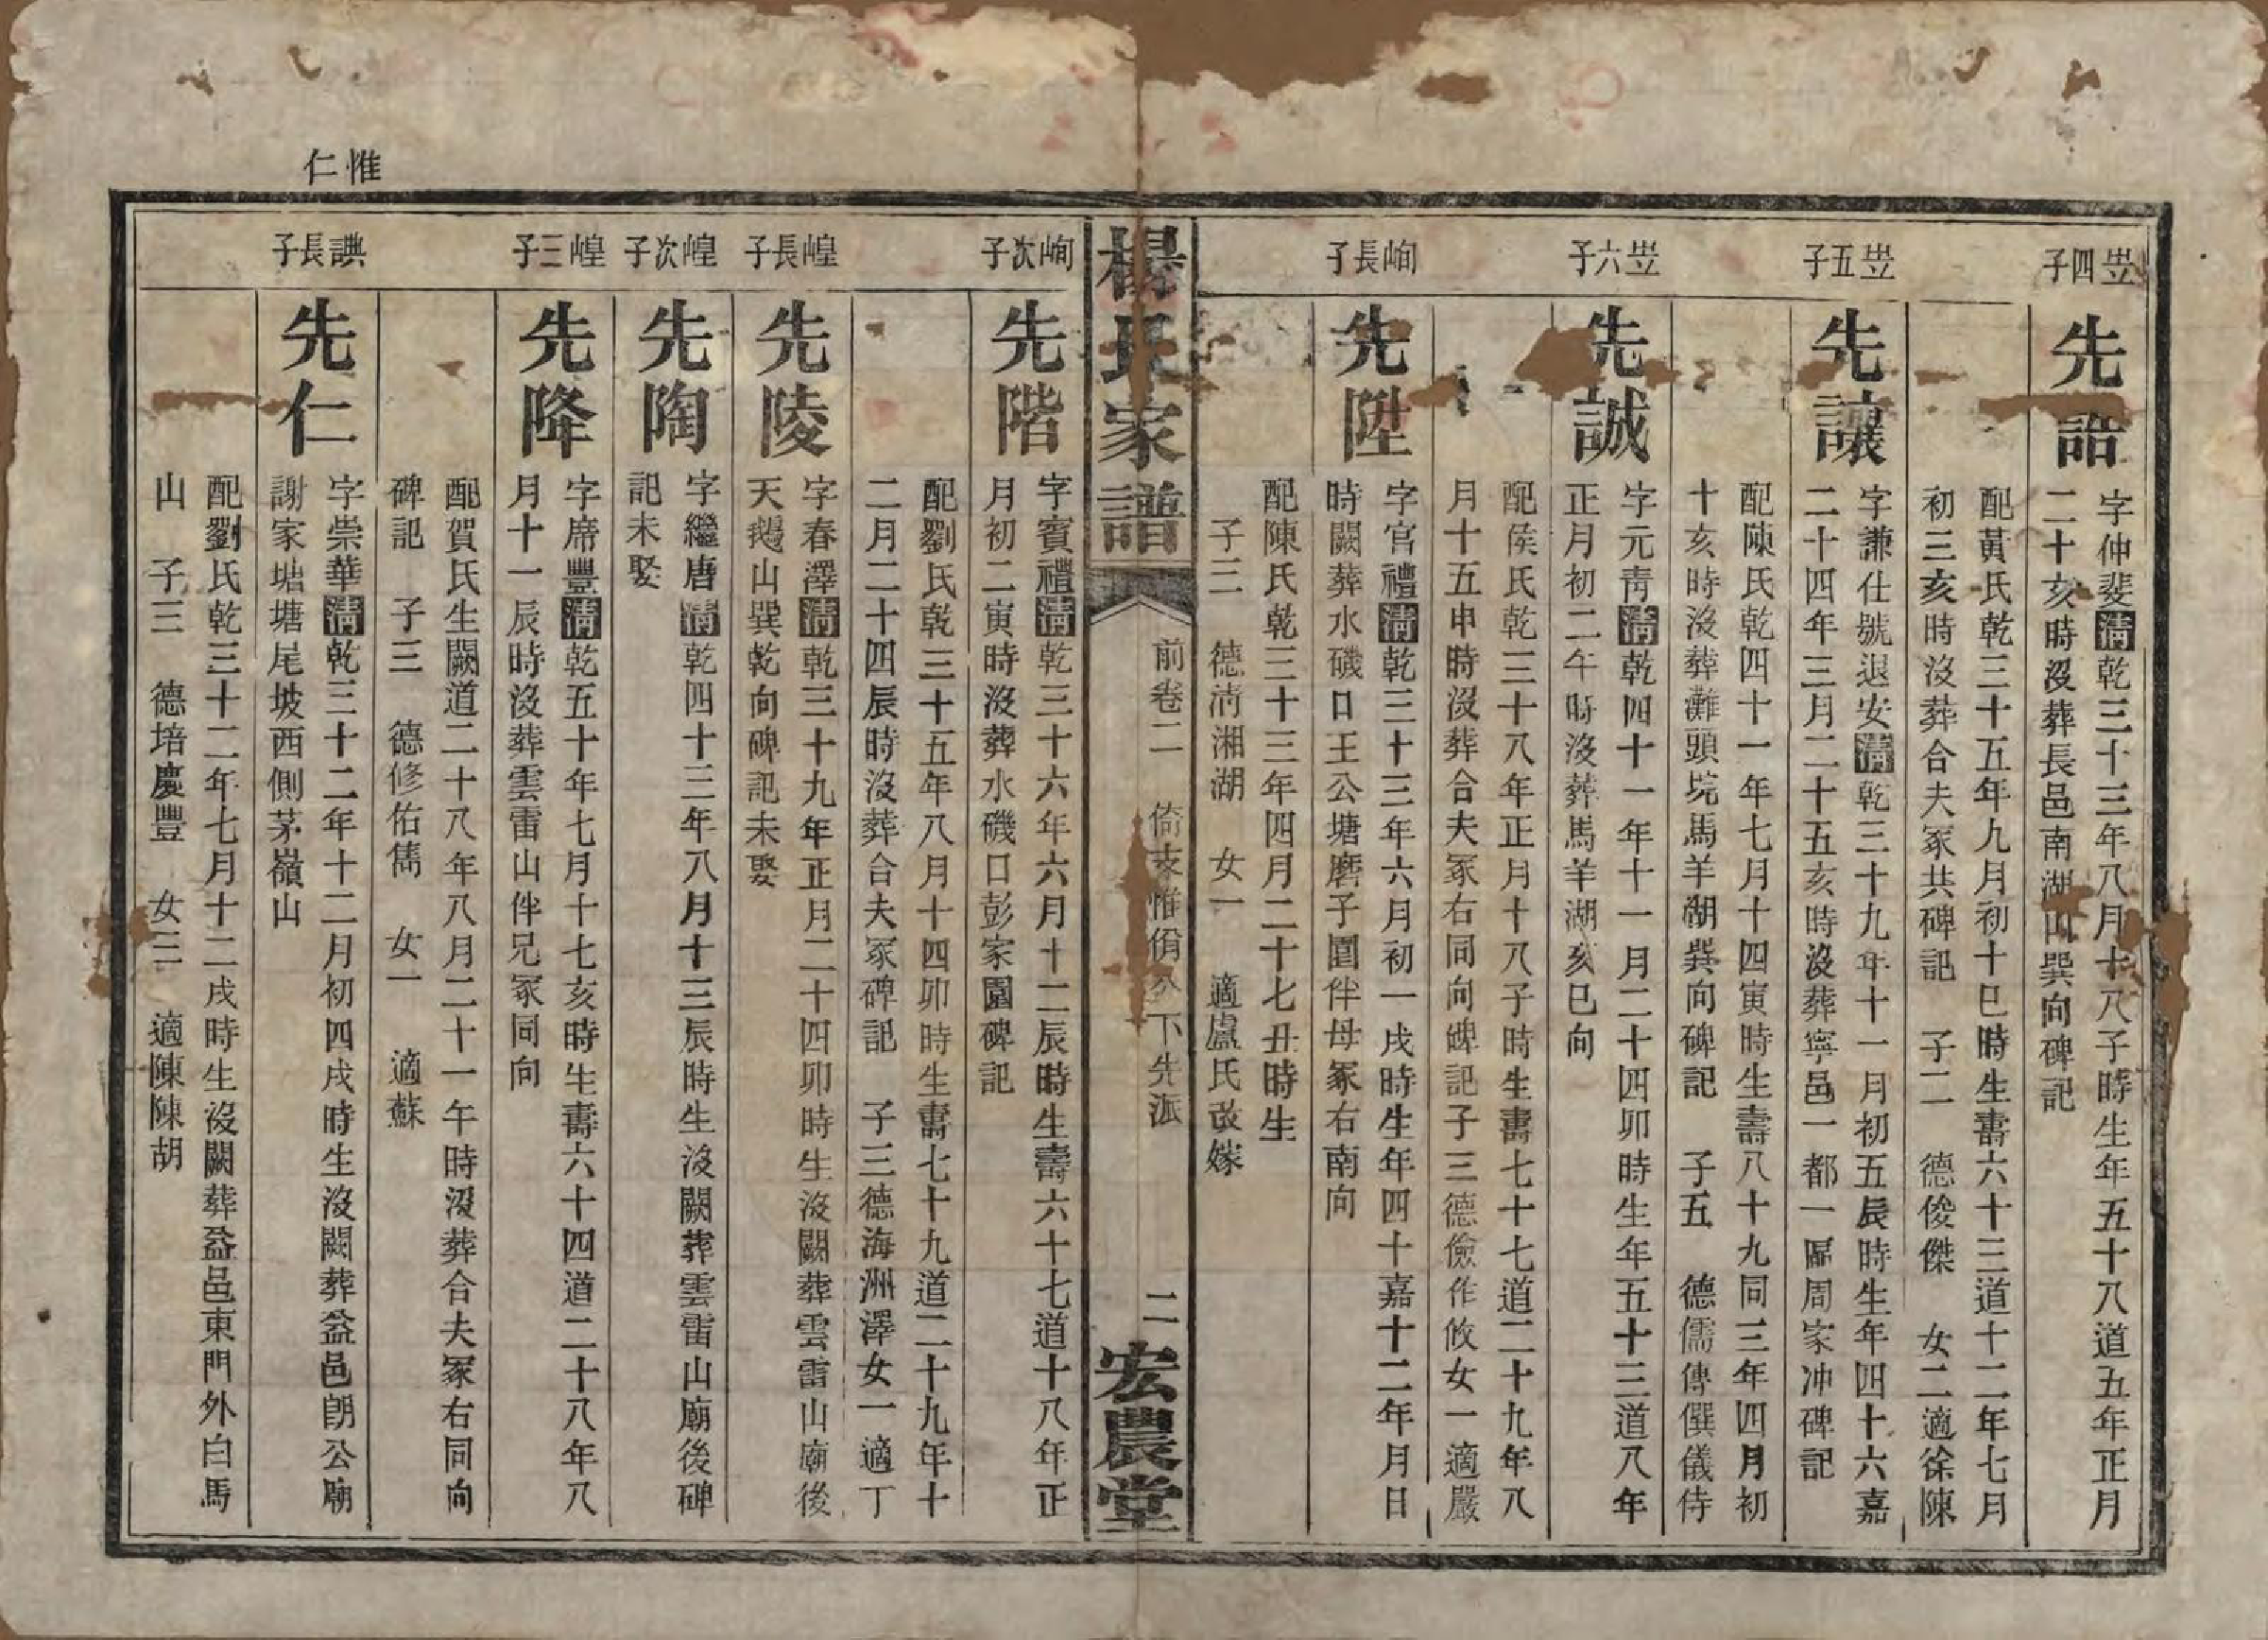 岦四子
先詒
字仲斐清乾三十三年八月十八子時生年五十八道五年正月
二十亥時沒葬長邑南湖山巽向碑記
配黃氏乾三十五年九月初十巳時生壽六十三道十二年七月
初三亥時沒葬合夫冢共碑記 子二 德俊傑 女二適徐陳
岦五子
先讓
字謙仕號退安清乾三十九年十一月初五辰時生年四十六嘉
二十四年三月二十五亥時沒葬寧邑一都一區周家冲碑記
配陳氏乾四十一年七月十四寅時生壽八十九同三年四月初
十亥時沒葬灘頭垸馬羊湖巽向碑記 子五 德儒傳僎儀侍
岦六子
先誠
字元靑清乾四十一年十一月二十四卯時生年五十三道八年
正月初二午時沒葬馬羊湖亥巳向
配侯氏乾三十八年正月十八子時生壽七十七道二十九年八
月十五申時沒葬合夫冢右同向碑記子三德儉作攸女一適嚴
峋長子
先陞
字官禮清乾三十三年六月初一戌時生年四十嘉十二年月日
時闕葬水磯口王公塘磨子園伴母冢右南向
配陳氏乾三十三年四月二十七丑時生
子三 德淸湘湖 女一 適盧氏改嫁
楊氏家譜
前卷二 倚支惟俏公下先派
二
宏農堂
峋次子
先階
字賓禮清乾三十六年六月十二辰時生壽六十七道十八年正
月初二寅時沒葬水磯口彭家園碑記
配劉氏乾三十五年八月十四卯時生壽七十九道二十九年十
二月二十四辰時沒葬合夫冢碑記 子三德海洲澤女一適丁
崲長子
先陵
字春澤清乾三十九年正月二十四卯時生沒闕葬雲雷山廟後
天鵝山巽乾向碑記未娶
崲次子
先陶
字繼唐清乾四十三年八月十三辰時生沒闕葬雲雷山廟後碑
記未娶
崲三子
先降
字席豐清乾五十年七月十七亥時生壽六十四道二十八年八
月十一辰時沒葬雲雷山伴兄冢同向
配賀氏生闕道二十八年八月二十一午時沒葬合夫冢右同向
碑記 子三 德修佑儁 女一 適蘇
惟仁
䛑長子
先仁
字崇華清乾三十二年十二月初四戌時生沒闕葬益邑朗公廟
謝家塘塘尾坡西側茅嶺山
配劉氏乾三十二年七月十二戌時生沒闕葬益邑東門外白馬
山 子三 德培慶豐 女三 適陳陳胡